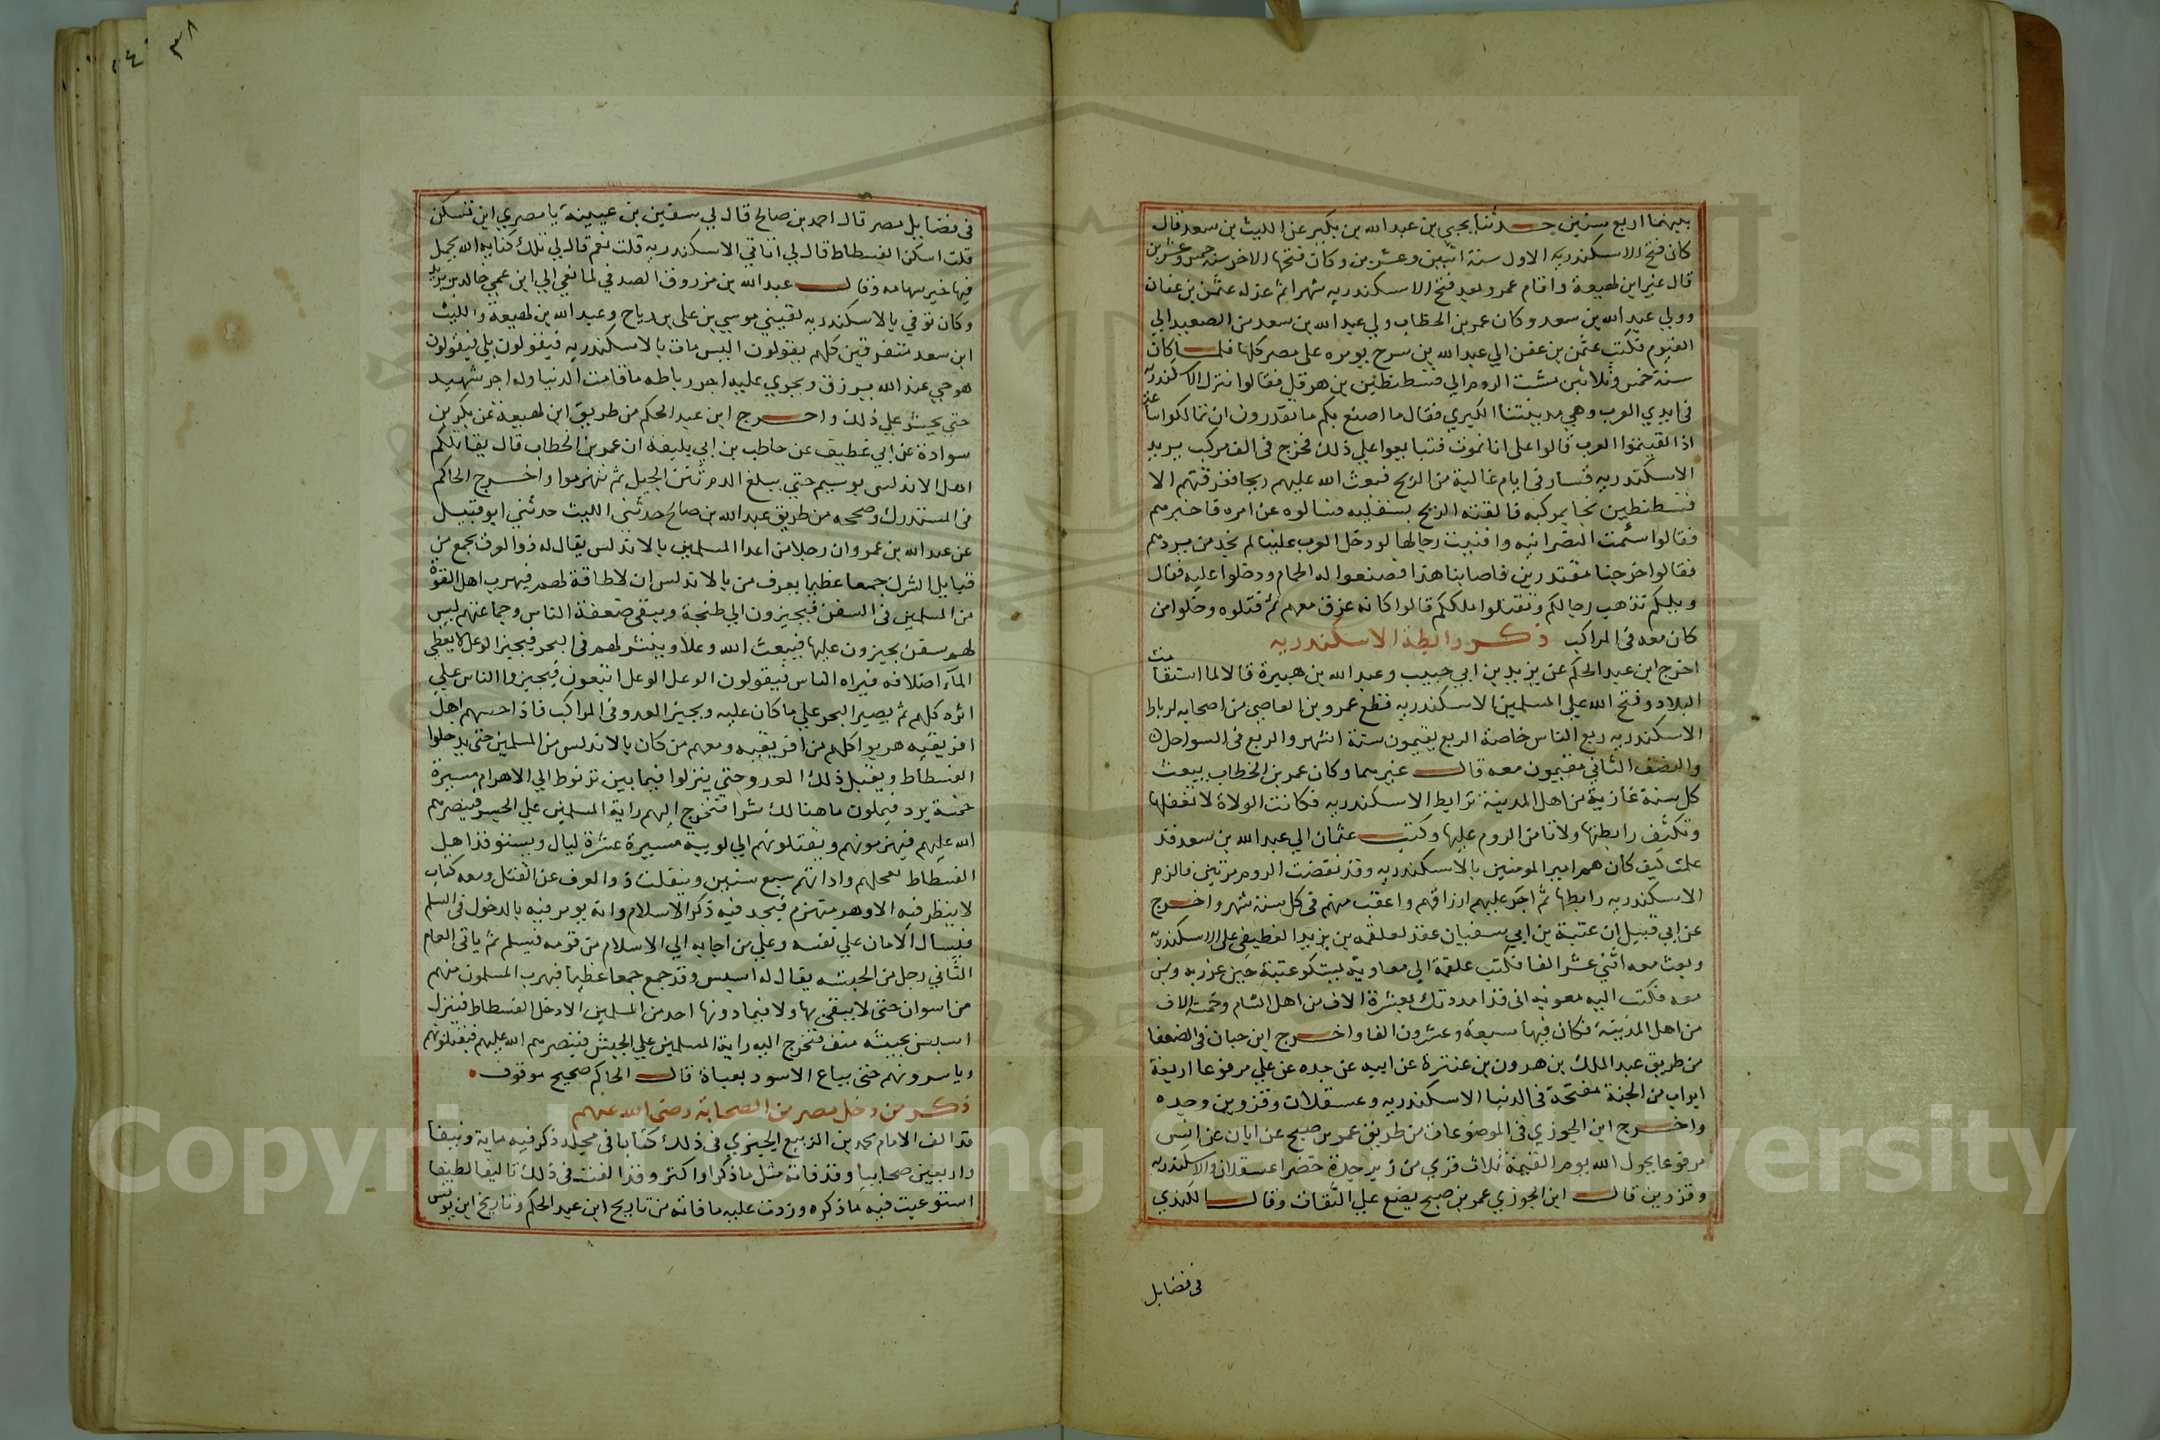 بينهما اربع سنين حدثنا يحيى بن عبد الله بن بكير عن الليث بن سعد قال
كان فتح الاسكندريه الاول سنة اثنين وعشرين وكان فتحها الاخر سنه خمس وعشرين
قال غير ابن لهيعة واقام عمرو بعد فتح الاسكندريه شهرا ثم عزله عثمن بن عفان
وولي عبد الله بن سعد وكان عمر بن الخطاب ولي عبد الله بن سعد من الصعيد الي
الفيوم فكتب عثمن بن عفن الي عبد الله بن سرح يومره علي مصر كلها فلما كان
سنة خمس وثلاثين مشت الروم الي قسطنطين بن هرقل فقالوا نترك الاسكندريه
في ايدي العرب وهي مدينتنا الكبري فقال ما اصنع بكم ما تقدرون ان تمالكوا ساعة
اذا لقيتموا العرب قالوا على انا نموت فتبايعوا علي ذلك فخرج في الف مركب يريد
الاسكندريه فسار في ايام غالبة من الريح فبعث الله عليهم ريحا فغرقتهم الا
قسطنطين نجا بمركبه فالقته الريح بسقليه فسالوه عن امره فاخبرهم
فقالوا شمت النصرانيه وافنيت رجالها لو دخل العرب علينا لم نجد من يردهم
فقال خرجنا مقتدرين فاصابنا هذا فصنعوا له الحمام ودخلوا عليه فقال
ويلكم تذهب رجالكم وتقتلوا ملككم قالوا كانه غرق معهم ثم قتلوه وخلوا من
كان معه في المراكب ذكر رابطة الاسكندريه
اخرج ابن عبد الحكم عن يزيد بن ابي حبيب وعبد الله بن هبيرة قالا لما استقامت
البلاد وفتح الله علي المسلمين الاسكندريه قطع عمرو بن العاصي من اصحابه لرباط
الاسكندريه ربع الناس خاصة الربع يقيمون ستة اشهر والربع في السواحل
والنصف الثاني مقيمون معه قال غيرهما وكان عمر بن الخطاب يبعث
كل سنة غازية من اهل المدينة ترابط الاسكندريه فكانت الولاة لا تغفلها
وتكثف رابطتها ولا تامن الروم عليها وكتب عثمان الي عبد الله بن سعد قد
علمت كيف كان هم امير المومنين بالاسكندريه وقد نقضت الروم مرتين فالزم
الاسكندريه رابطتها ثم اجر عليهم ارزاقهم واعقب منهم في كل ستة شهر واخرج
عن ابي قبيل ان عتبة بن ابي سفيان عقد لعلقمه بن يزيد الغطيفي علي الاسكندريه
وبعث معه اثني عشر الفا فكتب علقمة الي معاوية يشكو عتبة حين غرر به وبمن
معه فكتب اليه معويه اني قد امددتك بعشرة الاف من اهل الشام وخمسة الاف
من اهل المدينة فكان فيها سبعة وعشرون الفا واخرج ابن حبان في الضعفا
من طريق عبد الملك بن هرون بن عنترة عن ابيه عن جده عن علي مرفوعا اربعة
ابواب من الجنة مفتحة في الدنيا الاسكندريه وعسقلان وقزوين وجده
واخرج ابن الجوزي في الموضوعات من طريق عمر بن صبح عن ابان عن انس
مرفوعا يحول الله يوم القيمة ثلاث قري من زبرجدة خضرا عسقلان والاسكندريه
وقزوين قال ابن الجوزي عمر بن صبح يضع علي الثقات وقال الكندي
في فضايل
٣٨
في فضايل مصر قال احمد بن صالح قال لي سفين بن عيينة يا مصري اين تسكن
قلت اسكن الفسطاط قال لي اتاتي الاسكندريه قلت نعم قال لي تلك كنانة الله يجعل
فيها خير سهامه وقال عبد الله بن مرزوق الصدفي لما نعي الي ابن عمي خالد بن يزيد
وكان توفي بالاسكندريه لقيني موسي بن علي بن رباح وعبد الله بن لهيعة والليث
ابن سعد متفرقين كلهم يقولون اليس مات بالاسكندريه فيقولون بلي فيقولون
هو حي عند الله يرزق ويجري عليه اجر رباطه ما قامت الدنيا وله اجر شهيد
حتى يحشر علي ذلك واخرج ابن عبد الحكم من طريق ابن لهيعة عن بكر بن
سوادة عن ابي غطيف عن حاطب بن ابي بلتعة ان عمر بن الخطاب قال يقاتلكم
اهل الاندلس بوسيم حتي يبلغ الدم ثنن الخيل ثم ينهزموا واخرج الحاكم
في المستدرك وصححه من طريق عبد الله بن صالح حدثني الليث حدثني ابو قبيل
عن عبد الله بن عمرو ان رجلا من اعدا المسلمين بالاندلس يقال له ذو العرف يجمع من
قبايل الشرك جمعا عظيما يعرف من بالاندلس ان لا طاقة لهم فيهرب اهل القوة
من المسلمين في السفن فيجيزون الي طنجة ويبقي ضعفة الناس وجماعتهم ليس
لهم سفن يجيزون عليها فيبعث الله وعلا وينشر لهم في البحر فيجيز الوعل لا يغطي
المآء اضلافه فيراه الناس فيقولون الوعل الوعل اتبعوه فيجيزوا الناس علي
اثره كلهم ثم يصير البحر علي ما كان عليه ويجيز العدو في المراكب فاذا حسهم اهل
افريقيه هربوا كلهم من افريقيه ومعهم من كان بالاندلس من المسلمين حتي يدخلوا
الفسطاط ويقبل ذلك العدو حتي ينزلوا فيما بين ترنوط الي الاهرام مسيرة
خمسة برد فيملون ما هنالك شرا فتخرج اليهم راية المسلمين علي الجسر فينصرهم
الله عليهم فيهزمونهم ويقتلونهم الي لوبية مسيرة عشرة ليال ويستوقد اهل
الفسطاط بعجلهم واداتهم سبع سنين وينفلت ذو العرف عن القتل ومعه كتاب
لا ينظر فيه الا وهو منهزم فيجد فيه ذكر الاسلام وانه يومر فيه بالدخول في السلم
فيسال الامان علي نفسه وعلي من اجابه الي الاسلام من قومه فيسلم ثم ياتي العام
الثاني رجل من الحبشه يقال له اسيس وقد جمع جمعا عظيما فيهرب المسلمون منهم
من اسوان حتي لا يبقي بها ولا فيما دونها احد من المسلمين الا دخل الفسطاط فينزل
اسيس بجيشه منف فتخرج اليه راية المسلمين علي الجيش فينصرهم الله عليهم فيقتلونهم
وياسرونهم حتي يباع الاسود بعباة قال الحاكم صحيح موقوف
ذكر من دخل مصر من الصحابة رضي الله عنهم
قد الف الامام محمد بن الربيع الجيزي في ذلك كتابا في مجلد ذكر فيه ماية ونيفا
واربعين صحابيا وقد فاته مثل ما ذكر او اكثر وقد الفت في ذلك تاليفا لطيفا
استوعبت فيه ما ذكره وزدت عليه ما فاته من تاريخ ابن عبد الحكم وتاريخ ابن يونس
Copyright © King Saud University